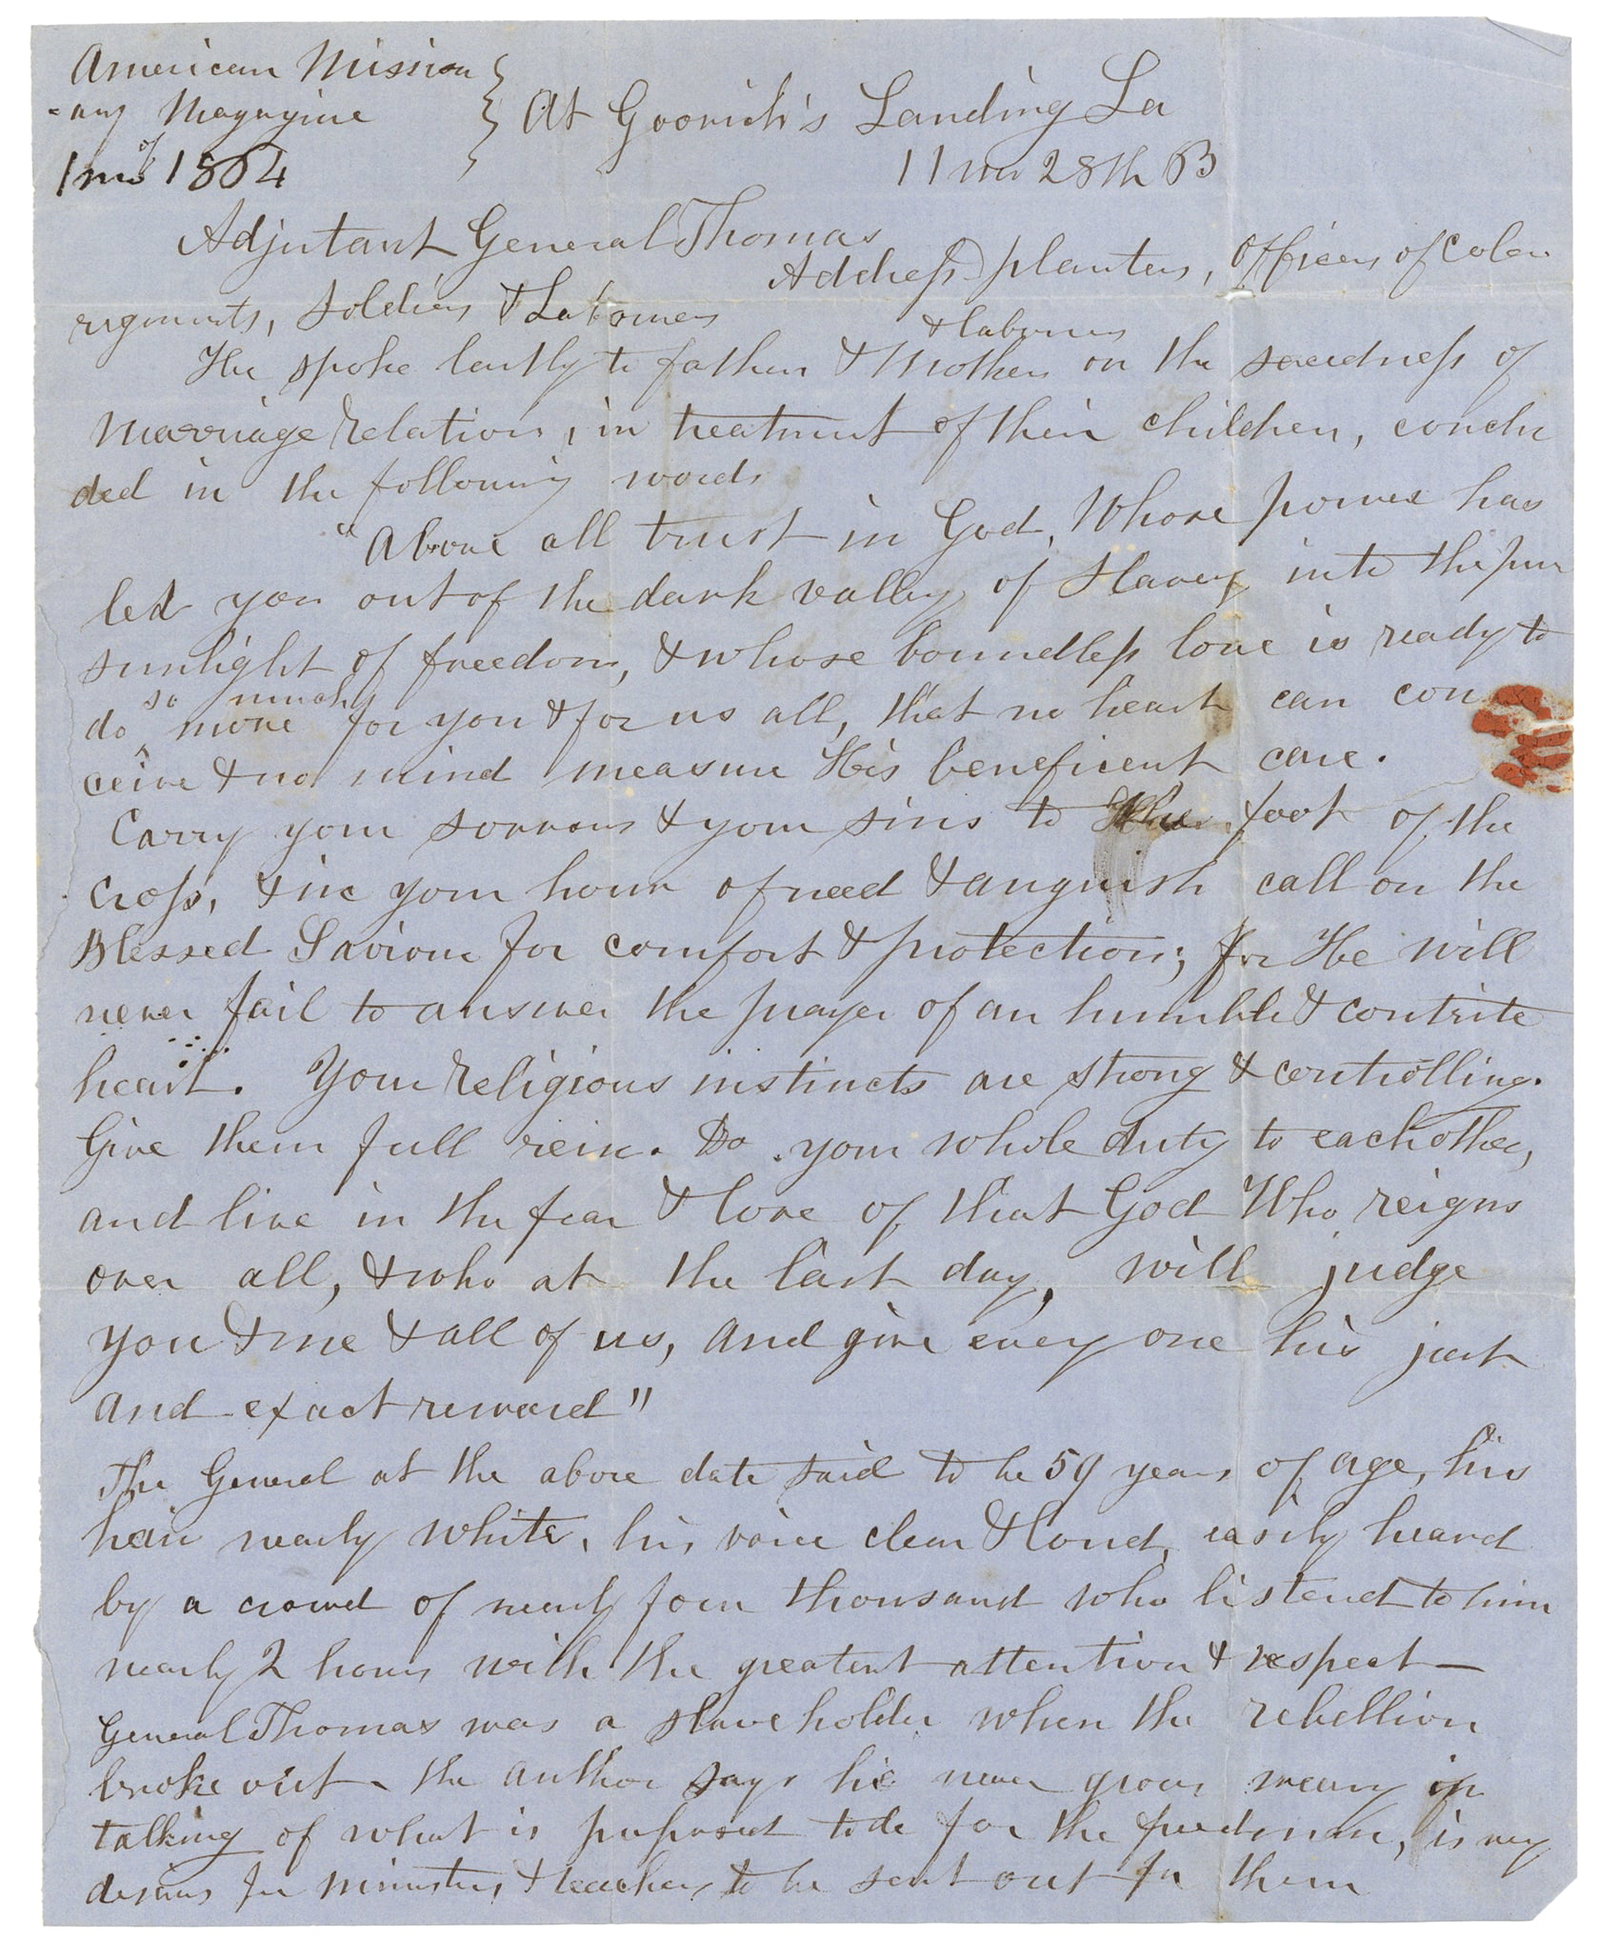 American Mission
-ary Magazine
1 mo of 1864
At Goorich's Landing La
11 mo 28th 63
Adjutant General Thomas
Address planters, officers of color
regiments, soldiers & Labourers
& labourers
He spoke lastly to fathers & Mothers on the sacredness of
Marriage relation, in treatment of their children, conclu
ded in the following words
"Above all trust in God, Whose power has
led you out of the dark valley of Slavery into the pure
sunlight of freedom, & whose boundless love is ready to
so much
do more for you & for us all, that no heart can con
ceive & no mind measure His beneficent care.
Carry your sorrows & your sins to the foot of the
Cross, & in your hour of need & anguish call on the
Blessed Saviour for comfort & protection; for He will
never fail to answer the prayer of an humble & contrite
heart. Your religious instincts are strong & controlling.
Give them full rein. Do your whole duty to each other,
and live in the fear & love of that God Who reigns
over all, & who at the last day, will judge
you & me & all of us, and give every one his just
and exact reward"
The General at the above date said to be 59 years of age, his
hair nearly white, his voice clear & loud, easily heard
by a crowd of nearly four thousand who listend to him
nearly 2 hours with the greatest attention & respect—
General Thomas was a slave holder when the rebellion
broke out - the author says he never grows weary in
talking of what is proposed to do for the freedmen, is very
desirous for ministers & teachers to be sent out to them